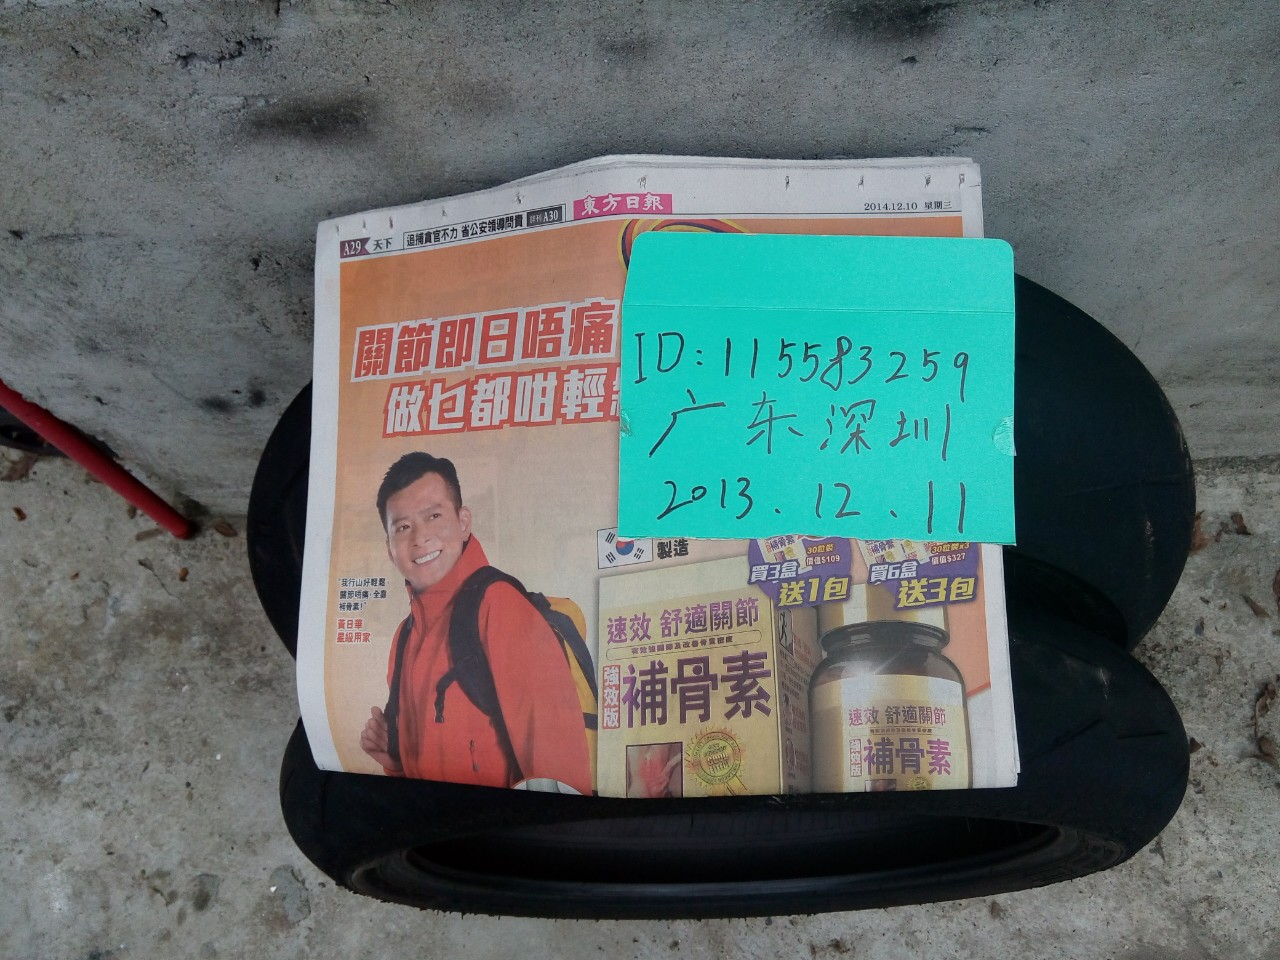 東方日報
2014.12.10 星期三
A29 天下 追捕貪官不力 省公安領導問責 詳刊A30
關節即日唔痛
做乜都咁輕
ID:115583259
广东深圳
2013.12.11
製造
30粒裝
價值$109
30粒裝x3
價值$327
買3盒
送1包
買6盒
送3包
"我行山好輕鬆
關節唔痛,全靠
補骨素!"
黃日華
星級用家
速效 舒適關節
強效版
補骨素
速效 舒適關節
強效版
補骨素